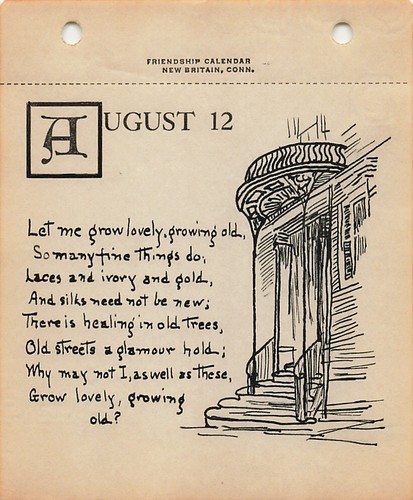 FRIENDSHIP CALENDAR
NEW BRITAIN, CONN.
AUGUST 12
Let me grow lovely, growing old,
So many fine things do;
Laces and ivory and gold,
And silks need not be new;
There is healing in old trees,
Old streets a glamour hold;
Why may not I, as well as these,
Grow lovely, growing
old?